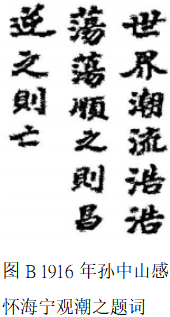 世界潮流浩浩
蕩蕩順之則昌
逆之則亡
图 B 1916 年孙中山感
怀海宁观潮之题词